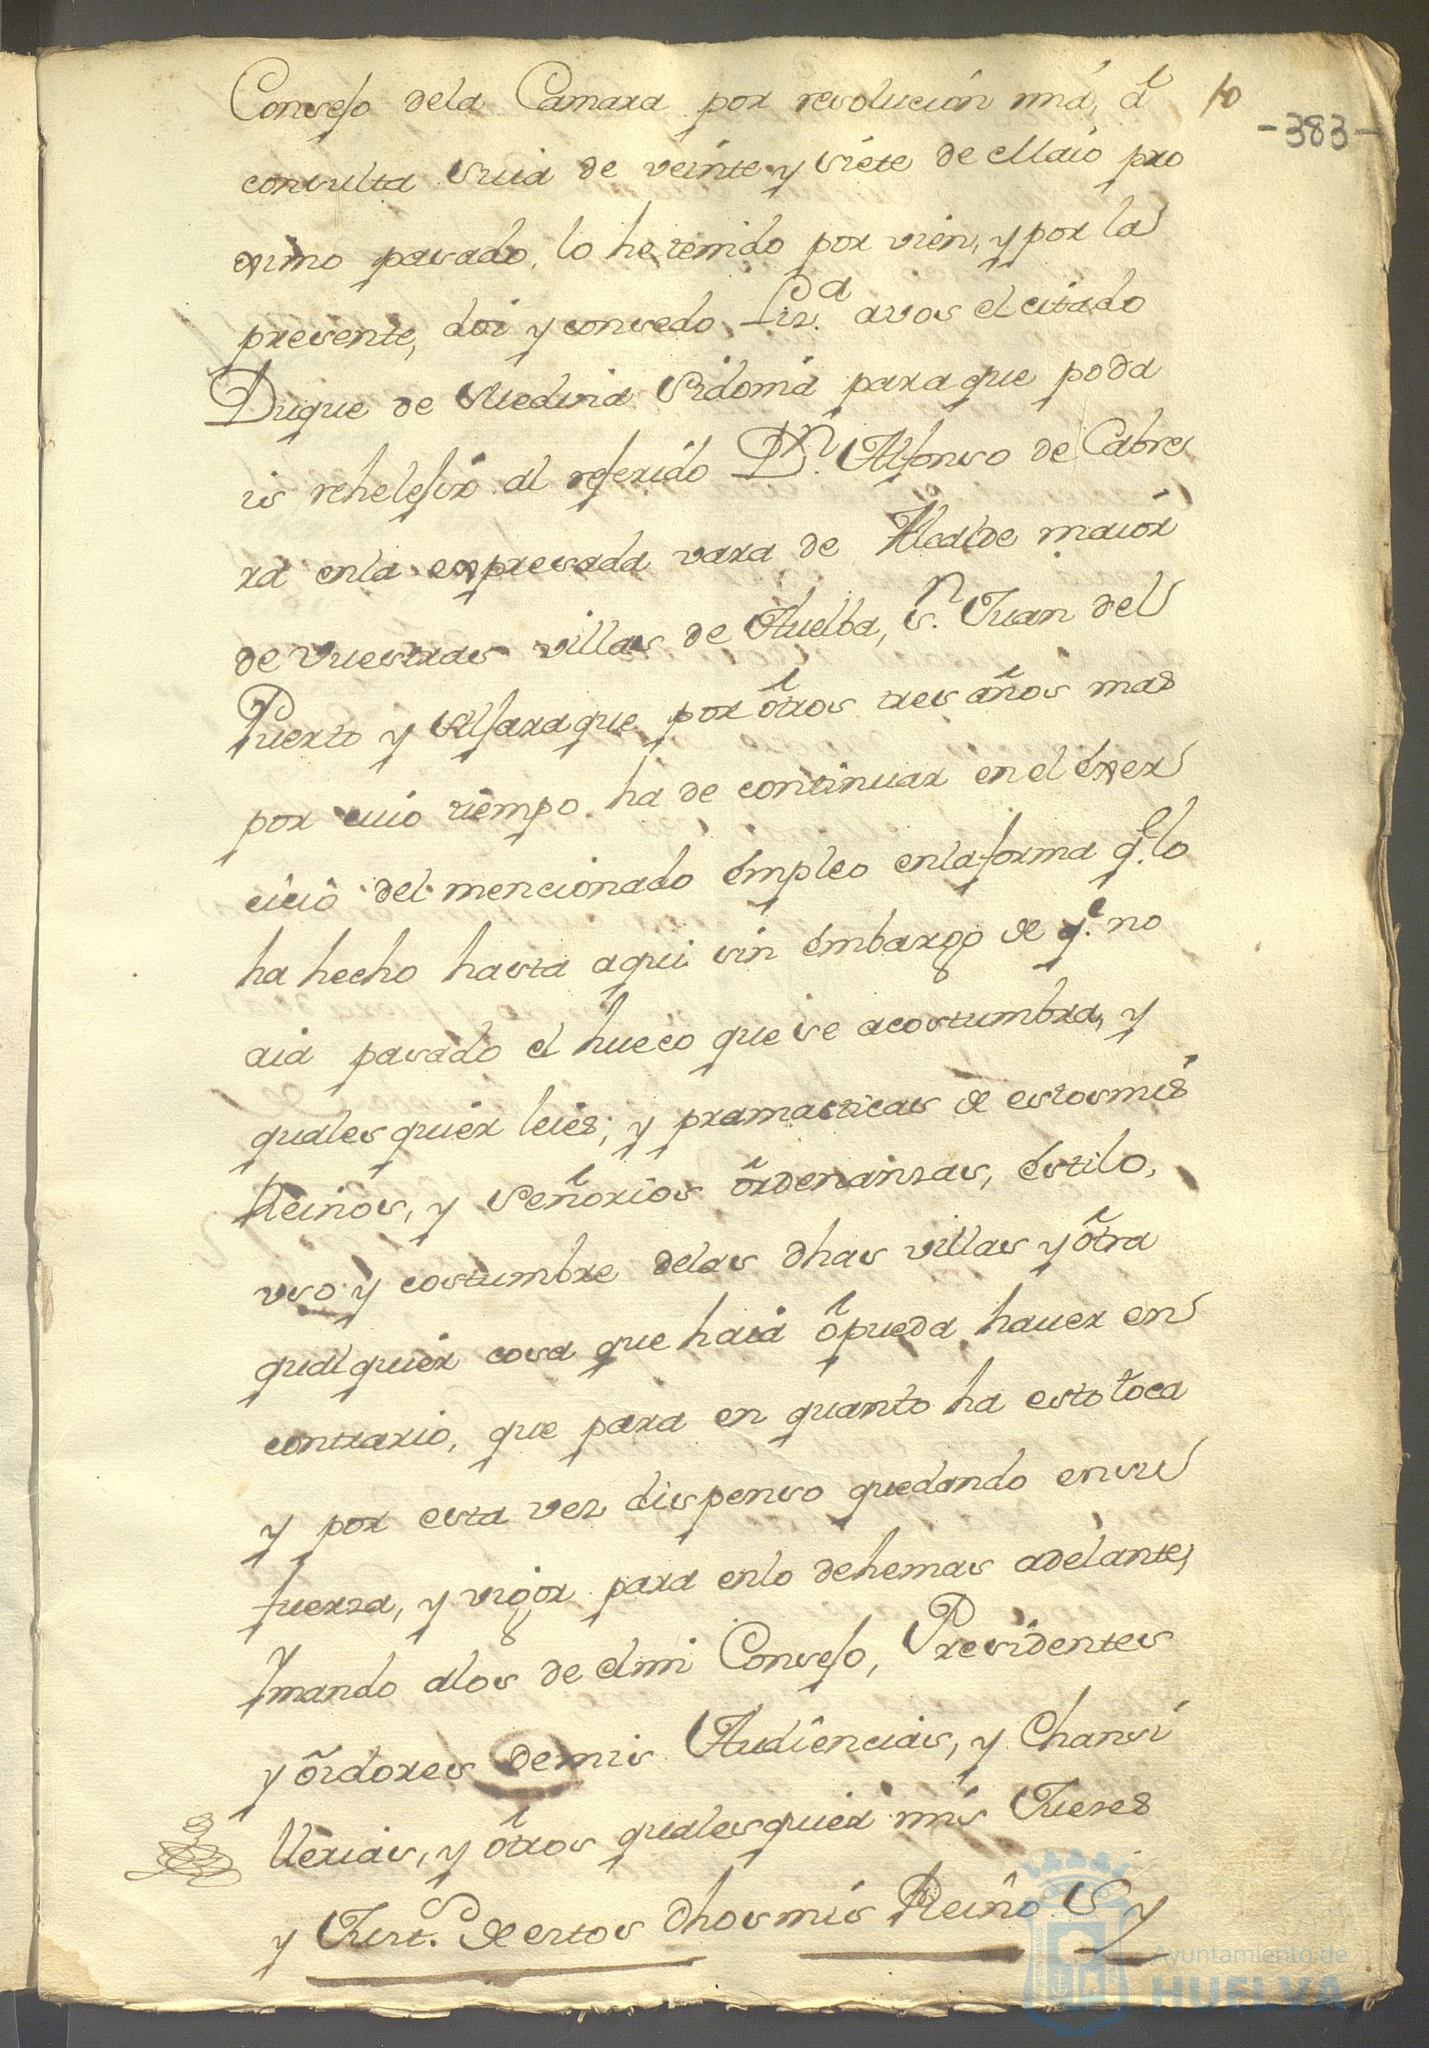 Consejo dela Camara por resolucion mia, á
10
-383-
consulta suia de veinte y siete de Maio pro
ximo pasado, lo he tenido por vien, y por la
presente, doi y consedo Liz.ª avos el citado
Duque de Medina Sidonia para que poda
is rehelejir al referido D.n Alfonso de Cabre
ra enla expresada vara de Alcalde maior
de vuestras villas de Huelba, s.n Juan del
Puerto y Alfaraque por otros tres años mas
por cuio tiempo ha de continuar en el exer
cicio del mencionado empleo enla forma q.e lo
ha hecho hasta aqui sin embargo de q.e no
aia pasado el hueco que se acostumbra, y
quales quier leies, y pramasticas de estos mis
Reinos, y Señorios ordenansas, estilo,
uso y costumbre delas dhas villas y otra
qualquier cosa que haia o pueda hauer en
contrario, que para en quanto ha esto toca
y por esta vez dispenso quedando en su
fuersa, y vigor para enlo dehemas adelante,
Y mando alos de el mi Consejo, Presidentes
y oidores de mis Audiencias, y Chansi
llerias, y otros quales quier mis Jueses
y Just.s de estos dhos mis Reino S y
Ayuntamiento de
HUELVA